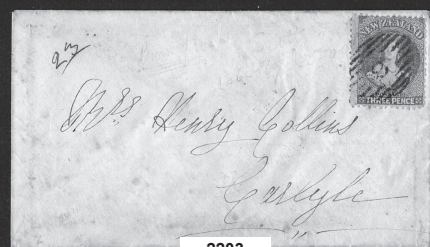 NEW ZEALAND
THREE PENCE
Mrs Henry Collins
Carlyle
2203